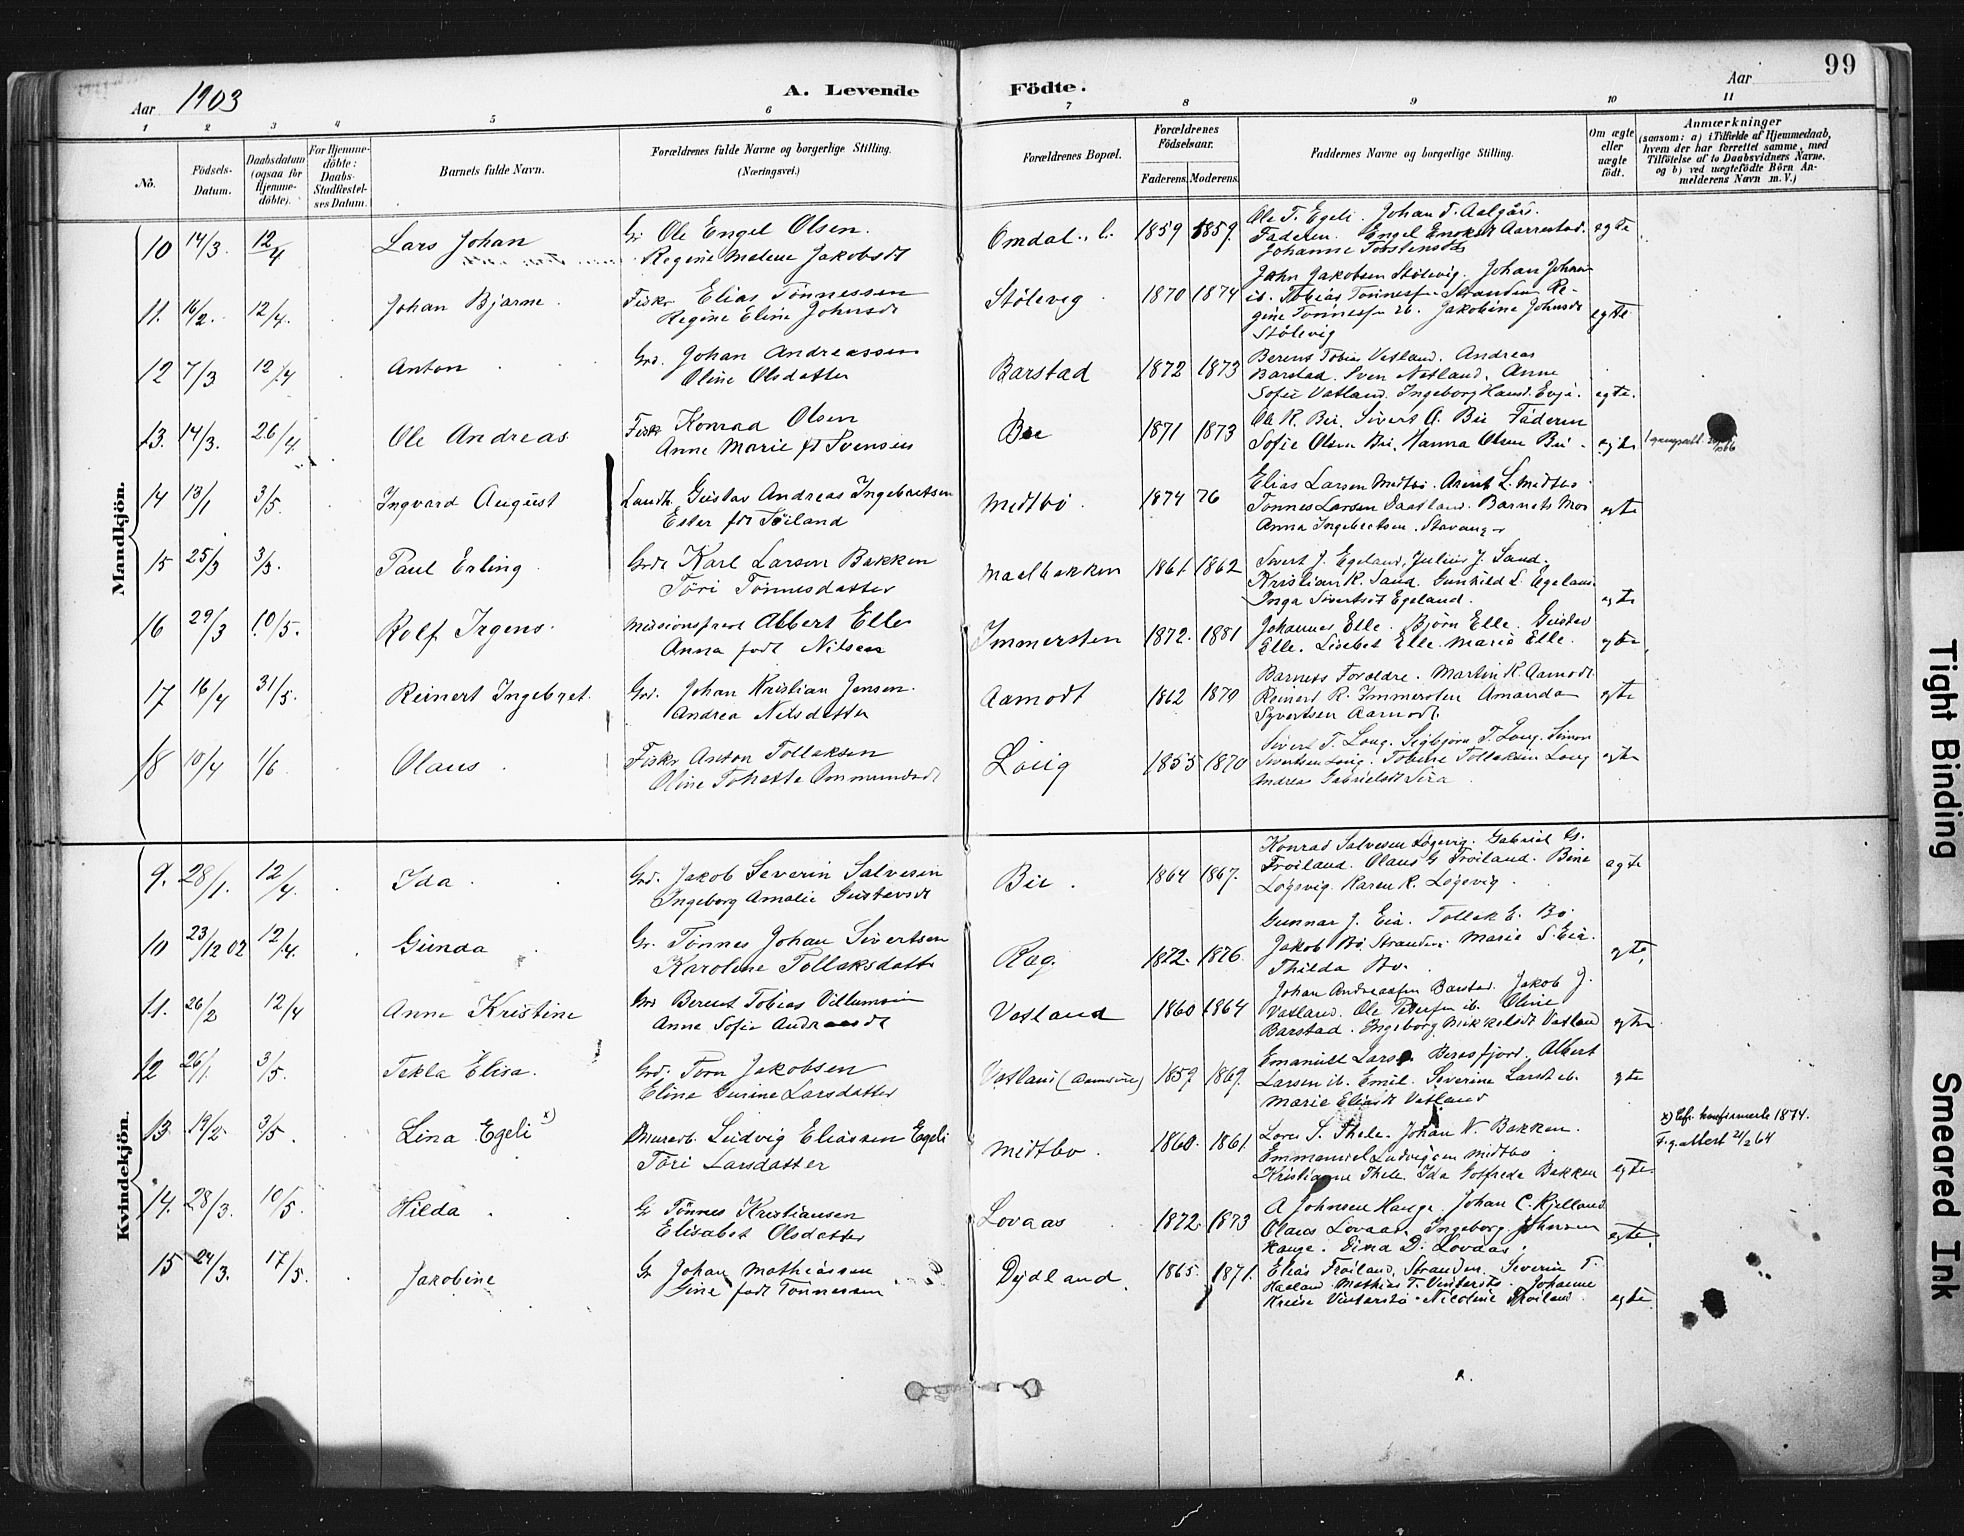 99
Aar 1903
A. Levende Födte.
Aar
1 2 3 4 5 6 7 8 9 10 11
No.
Födsels-Datum.
Daabsdatum (ogsaa for Hjemmedöbte).
For Hjemmedöbte: Daabs-Stadfæstelses Datum.
Barnets fulde Navn.
Forældrenes fulde Navne og borgerlige Stilling.
(Næringsvei.)
Forældrenes Bopæl.
Forældrenes Födselsaar.
Faderens. Moderens.
Faddernes Navne og borgerlige Stilling.
Om ægte eller uægte födt.
Anmærkninger
(saasom: a) i Tilfælde af Hjemmedaab, hvem der har forrettet samme, med Tilföielse af to Daabsvidners Navne, og b) ved uægtefödte Börn Anmelderens Navn m. V.)
Mandkjön.
10 14/3. 12/4 Lars Johan Gr Ole Engel Olsen. Omdal. 1859 1859. Ole T. Egeli. Johan T. Aalgårs.
Regine Malene Jakobsdt Faderen. Engel Enoksen Aarrestad. egte
Johanne Torstensdt
11. 16/2. 12/4. Johan Bjarne Fiskr Elias Tönnessen Stölevig 1870 1874 John Jakobsen Stölevig. Johan Johns
Regine Eline Johnsdt ib. Tobias Tönnesen Stranden Re-
gine Tönnesen ib. Jakobine Johnsdt egte
Stölevig
12 7/3 12/4 Anton Grd. Johan Andreassen Barstad 1872 1873 Berent Tobias Vatland. Andreas
Oline Olsdatter Barstad. Sven Netland. Anne
Sofie Vatland. Ingeborg Evje. egte.
13. 14/3. 26/4 Ole Andreas Fiskr Konrad Olsen Bie 1871 1873 Ole R. Bie. Sivert A. Bie Faderen
Anne Marie ft Svensen Sofie Olsen Bie. Hanna Olsen Bie egte
14 13/1 3/5. Ingvard August Landh. Gustav Andreas Ingebretsen Midtbö 1874 76 Elias Larsen Midtbö. Arent L. Midtbö
Ester fdt Töiland Tönnes Larsen Vatland. Barnets Mor egte
Anna Ingebretsen. Stavanger
15 25/3 3/5. Paul Erling Grdr Karl Larsen Bakken Maalbakken 1861 1862 Sivert J. Egeland. Julius J. Sand.
Töri Tönnesdatter Kristian R. Sand. Gunhild S. Egeland
Inga Sivertsdt Egeland. egte
16 29/3 10/5. Rolf Irgens. Missionspred Albert Elle Immersten 1872. 1881 Johannes Elle. Björn Elle. Gustav
Anna födt Nilsen Elle. Lisebet Elle Marie Elle. egte
17 16/4 31/5. Reinert Ingebret. Grd. Johan Kristian Jensen. Aamodt 1862 1870 Barnets Forældre. Martin K. Aamodt
Andrea Nilsdatter Reinert R. Immersten Amanda egte
Syvertsen Aamodt.
18 10/4 1/6 Olaus Fiskr Anton Tollaksen Löiig 1855 1870 Sivert T. Loug. Sigbjörn T. Loug. Simon
Oline Tonette Ommundsdt Sivertsen Loug. Tobine Tollaksen Loug egte
Andrea Gabrielsdt Sira
Kvindekjön.
9. 28/1. 12/4. Ida Grd. Jakob Severin Salvesen Bie. 1864 1867. Konrad Salvesen Lögevig. Gabriel G.
Ingeborg Amalie Gustavsdt Fröiland. Olaus G Fröiland. Bine egte
Lögevig. Karen K. Lögevig.
10 23/12 02 12/4. Gunda Gr. Tönnes Johan Sivertsen Rag. 1872. 1876. Gunnar J. Eia. Tollak E. Bö.
Karoline Tollaksdatter Jakob Bö. Stranden. Marie S. Eia. egte.
Thilda Bö.
11. 26/2 12/4 Anne Kristine Grd Berent Tobias Villumsen Vatland 1860 1864 Johan Andreassen Barstad. Jakob J.
Anne Sofie Andreasdt Vatland. Ole Petersen ib. Oline
Barstad. Ingeborg Mikkelsdt Vatland egte
12 26/1. 3/5. Tekla Elisa. Grd. Tom Jakobsen Vatland 1859 1869. Emanuel Larsen Beresfjord. Albert
Eline Gurine Larsdatter Larsen ib. Emil. Severine Larsdt ib. egte
Marie Eliasdt Vatland
13. 19/2 3/5. Lina Egeli x) Murarb. Ludvig Eliassen Egeli Midtbö. 1860. 1861 Lars S. Thele. Johan N. Bakken.
Töri Larsdatter Emmanuel Ludvigsen Midtbö
Kristianne Thele. Ida Gotfreda Bakken egte.
x) Efr. konfirmerte 1874.
14. 28/3. 10/5. Hilda Gr Tönnes Kristiansen Lovaas 1872. 1873 A Johnsen Hauge. Johan C. Kjelland
Elisabet Olsdatter Olaus Lovaas. Ingeborg Johnsen egte.
Hauge. Eina D. Lovaas.
15 24/3. 17/5. Jakobine Gr Johan Mathiassen Dydland 1865. 1871. Elias Fröiland. Stranden. Severin T.
Gine födt Tönnessen Haeland Mathias T. Vinterstö. Johanne
Vinterstö. Nicoline Fröiland egte.
Tight Binding
Smeared Ink